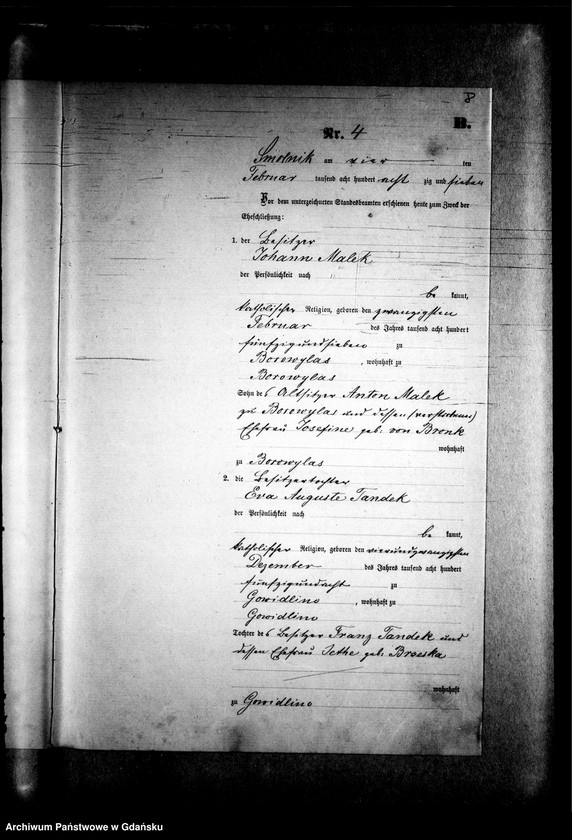 8
B.
Nr. 4
Smolnik am vier ten
Februar tausend acht hundert acht zig und sieben
Vor dem unterzeichneten Standesbeamten erschienen heute zum Zweck der
Eheschließung:
1. der Besitzer
Johann Malek
der Persönlichkeit nach
be kannt,
katholischer Religion, geboren den zwanzigsten
Februar des Jahres tausend acht hundert
fünfzigundsieben zu
Borowylas, wohnhaft zu
Borowylas
Sohn des Altsitzer Anton Malek
zu Borowylas und dessen (verstorbenen)
Ehefrau Josefine geb: von Bronk
wohnhaft
zu Borowylas
2. die Besitzertochter
Eva Auguste Tandek
der Persönlichkeit nach
be kannt,
katholischer Religion, geboren den vierundzwanzigsten
Dezember des Jahres tausend acht hundert
fünfzigundacht zu
Gowidlino, wohnhaft zu
Gowidlino
Tochter des Besitzer Franz Tandek und
dessen Ehefrau geb:
wohnhaft
zu Gowidlino
Archiwum Państwowe w Gdańsku